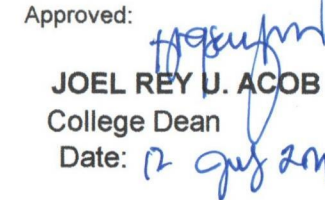 Approved:
JOEL REY U. ACOB
College Dean
Date: 12